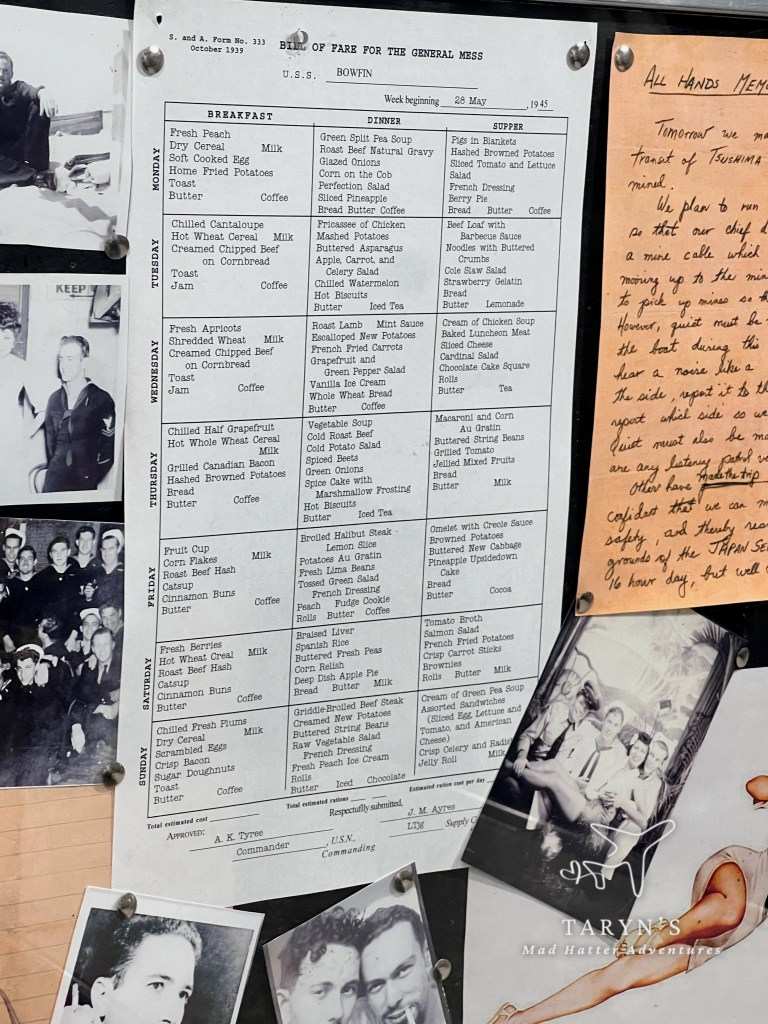 S. and A. Form No. 333
October 1939
BILL OF FARE FOR THE GENERAL MESS
U.S.S. BOWFIN
Week beginning 28 May, 1945
BREAKFAST
DINNER
SUPPER
MONDAY
Fresh Peach
Dry Cereal Milk
Soft Cooked Egg
Home Fried Potatoes
Toast
Butter Coffee
Green Split Pea Soup
Roast Beef Natural Gravy
Glazed Onions
Corn on the Cob
Perfection Salad
Sliced Pineapple
Bread Butter Coffee
Pigs in Blankets
Hashed Browned Potatoes
Sliced Tomato and Lettuce
Salad
French Dressing
Berry Pie
Bread Butter Coffee
TUESDAY
Chilled Cantaloupe
Hot Wheat Cereal Milk
Creamed Chipped Beef
on Cornbread
Toast
Jam Coffee
Fricassee of Chicken
Mashed Potatoes
Buttered Asparagus
Apple, Carrot, and
Celery Salad
Chilled Watermelon
Hot Biscuits
Butter Iced Tea
Beef Loaf with
Barbecue Sauce
Noodles with Buttered
Crumbs
Cole Slaw Salad
Strawberry Gelatin
Bread
Butter Lemonade
WEDNESDAY
Fresh Apricots
Shredded Wheat Milk
Creamed Chipped Beef
on Cornbread
Toast
Jam Coffee
Roast Lamb Mint Sauce
Escalloped New Potatoes
French Fried Carrots
Grapefruit and
Green Pepper Salad
Vanilla Ice Cream
Whole Wheat Bread
Butter Coffee
Cream of Chicken Soup
Baked Luncheon Meat
Sliced Cheese
Cardinal Salad
Chocolate Cake Square
Rolls
Butter Tea
THURSDAY
Chilled Half Grapefruit
Hot Whole Wheat Cereal
Milk
Grilled Canadian Bacon
Hashed Browned Potatoes
Bread
Butter Coffee
Vegetable Soup
Cold Roast Beef
Cold Potato Salad
Spiced Beets
Green Onions
Spice Cake with
Marshmallow Frosting
Hot Biscuits
Butter Iced Tea
Macaroni and Corn
Au Gratin
Buttered String Beans
Grilled Tomato
Jellied Mixed Fruits
Bread
Butter Milk
FRIDAY
Fruit Cup
Corn Flakes Milk
Roast Beef Hash
Catsup
Cinnamon Buns
Butter Coffee
Broiled Halibut Steak
Lemon Slice
Potatoes Au Gratin
Fresh Lima Beans
Tossed Green Salad
French Dressing
Peach Fudge Cookie
Rolls Butter Coffee
Omelet with Creole Sauce
Browned Potatoes
Buttered New Cabbage
Pineapple Upsidedown
Cake
Bread
Butter Cocoa
SATURDAY
Fresh Berries
Hot Wheat Creal Milk
Roast Beef Hash
Catsup
Cinnamon Buns
Butter Coffee
Braised Liver
Spanish Rice
Buttered Fresh Peas
Corn Relish
Deep Dish Apple Pie
Bread Butter Milk
Tomato Broth
Salmon Salad
French Fried Potatoes
Crisp Carrot Sticks
Brownies
Rolls Butter Milk
SUNDAY
Chilled Fresh Plums
Dry Cereal Milk
Scrambled Eggs
Crisp Bacon
Sugar Doughnuts
Toast
Butter Coffee
Griddle-Broiled Beef Steak
Creamed New Potatoes
Buttered String Beans
Raw Vegetable Salad
French Dressing
Fresh Peach Ice Cream
Rolls
Butter Iced Chocolate
Cream of Green Pea Soup
Assorted Sandwiches
(Sliced Egg, Lettuce and
Tomato, and American
Cheese)
Crisp Celery and
Jelly Roll
Total estimated cost
Total estimated rations
Estimated ration cost per day
Respectfully submitted,
APPROVED:
A. K. Tyree
Commander, U.S.N.
Commanding
J. M. Ayres
LTjg Supply
ALL HANDS
Tomorrow we
transit of TSUSHIMA
mined.
We plan to run
so that our chief
a mine cable which
moving up to the
to pick up mines so
However, quiet must be
the boat during this
hear a noise like a
the side, report it to
report which side so we
Quiet must also be
are any listening patrol
Others have made the trip
confidant that we can
safety, and thereby
grounds of the JAPAN
16 hour day, but well
KEEP
TARYN'S
Mad Hatter Adventures